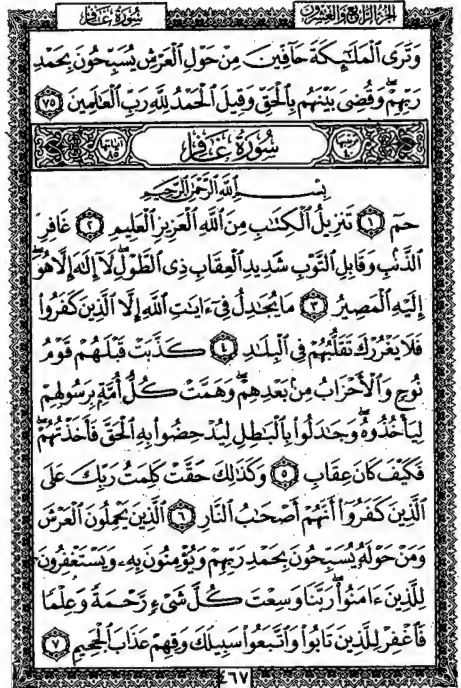 الجزء الرابع والعشرون
سُورَةُ غَافِرٍ
وَتَرَى ٱلْمَلَٰٓئِكَةَ حَآفِّينَ مِنْ حَوْلِ ٱلْعَرْشِ يُسَبِّحُونَ بِحَمْدِ
رَبِّهِمْۖ وَقُضِىَ بَيْنَهُم بِٱلْحَقِّ وَقِيلَ ٱلْحَمْدُ لِلَّهِ رَبِّ ٱلْعَٰلَمِينَ ٧٥
ترتيبها ٤٠ سُورَةُ غَافِرٍ آياتها ٨٥
بِسْمِ ٱللَّهِ ٱلرَّحْمَٰنِ ٱلرَّحِيمِ
حمٓ ١ تَنزِيلُ ٱلْكِتَٰبِ مِنَ ٱللَّهِ ٱلْعَزِيزِ ٱلْعَلِيمِ ٢ غَافِرِ
ٱلذَّنۢبِ وَقَابِلِ ٱلتَّوْبِ شَدِيدِ ٱلْعِقَابِ ذِى ٱلطَّوْلِۖ لَآ إِلَٰهَ إِلَّا هُوَۖ
إِلَيْهِ ٱلْمَصِيرُ ٣ مَا يُجَٰدِلُ فِىٓ ءَايَٰتِ ٱللَّهِ إِلَّا ٱلَّذِينَ كَفَرُوا۟
فَلَا يَغْرُرْكَ تَقَلُّبُهُمْ فِى ٱلْبِلَٰدِ ٤ كَذَّبَتْ قَبْلَهُمْ قَوْمُ
نُوحٍ وَٱلْأَحْزَابُ مِنۢ بَعْدِهِمْۖ وَهَمَّتْ كُلُّ أُمَّةٍۭ بِرَسُولِهِمْ
لِيَأْخُذُوهُۖ وَجَٰدَلُوا۟ بِٱلْبَٰطِلِ لِيُدْحِضُوا۟ بِهِ ٱلْحَقَّ فَأَخَذْتُهُمْۖ
فَكَيْفَ كَانَ عِقَابِ ٥ وَكَذَٰلِكَ حَقَّتْ كَلِمَتُ رَبِّكَ عَلَى
ٱلَّذِينَ كَفَرُوٓا۟ أَنَّهُمْ أَصْحَٰبُ ٱلنَّارِ ٦ ٱلَّذِينَ يَحْمِلُونَ ٱلْعَرْشَ
وَمَنْ حَوْلَهُۥ يُسَبِّحُونَ بِحَمْدِ رَبِّهِمْ وَيُؤْمِنُونَ بِهِۦ وَيَسْتَغْفِرُونَ
لِلَّذِينَ ءَامَنُوا۟ۖ رَبَّنَا وَسِعْتَ كُلَّ شَىْءٍ رَّحْمَةً وَعِلْمًا
فَٱغْفِرْ لِلَّذِينَ تَابُوا۟ وَٱتَّبَعُوا۟ سَبِيلَكَ وَقِهِمْ عَذَابَ ٱلْجَحِيمِ ٧
٤٦٧